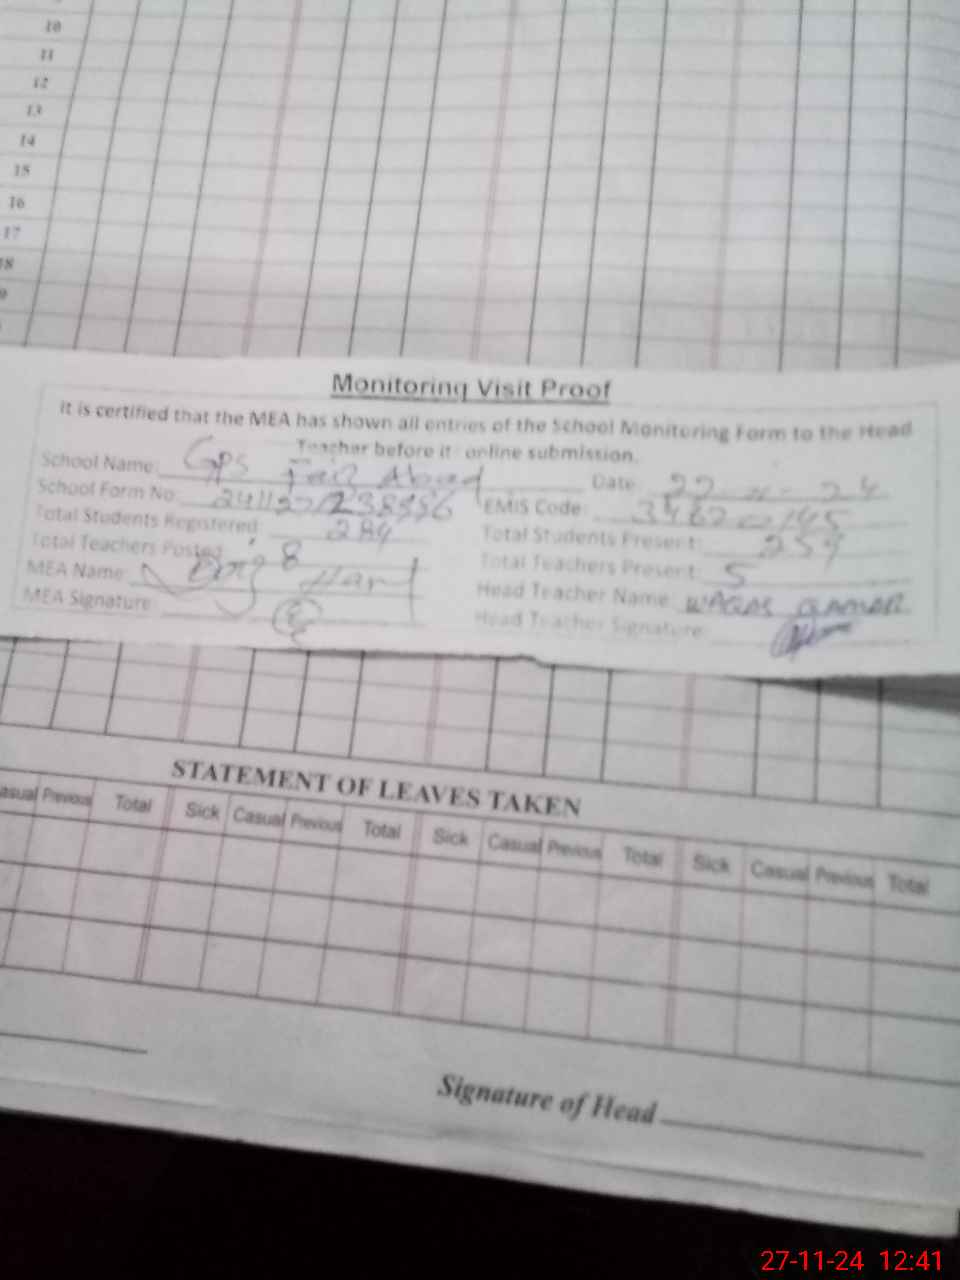 10
11
12
13
14
15
16
17
18
Monitoring Visit Proof
It is certified that the MEA has shown all entries of the School Monitoring Form to the Head
Teacher before it online submission.
School Name: GPS Abad Date: 22 - 11 - 24
School Form No: EMIS Code:
Total Students Registered: 284 Total Students Present: 259
Total Teachers Posted: 8 Total Teachers Present: 5
MEA Name: Head Teacher Name: WAQAS QAMAR
MEA Signature: Head Teacher Signature:
STATEMENT OF LEAVES TAKEN
asual Previous Total Sick Casual Previous Total Sick Casual Previous Total Sick Casual Previous Total
Signature of Head
27-11-24 12:41